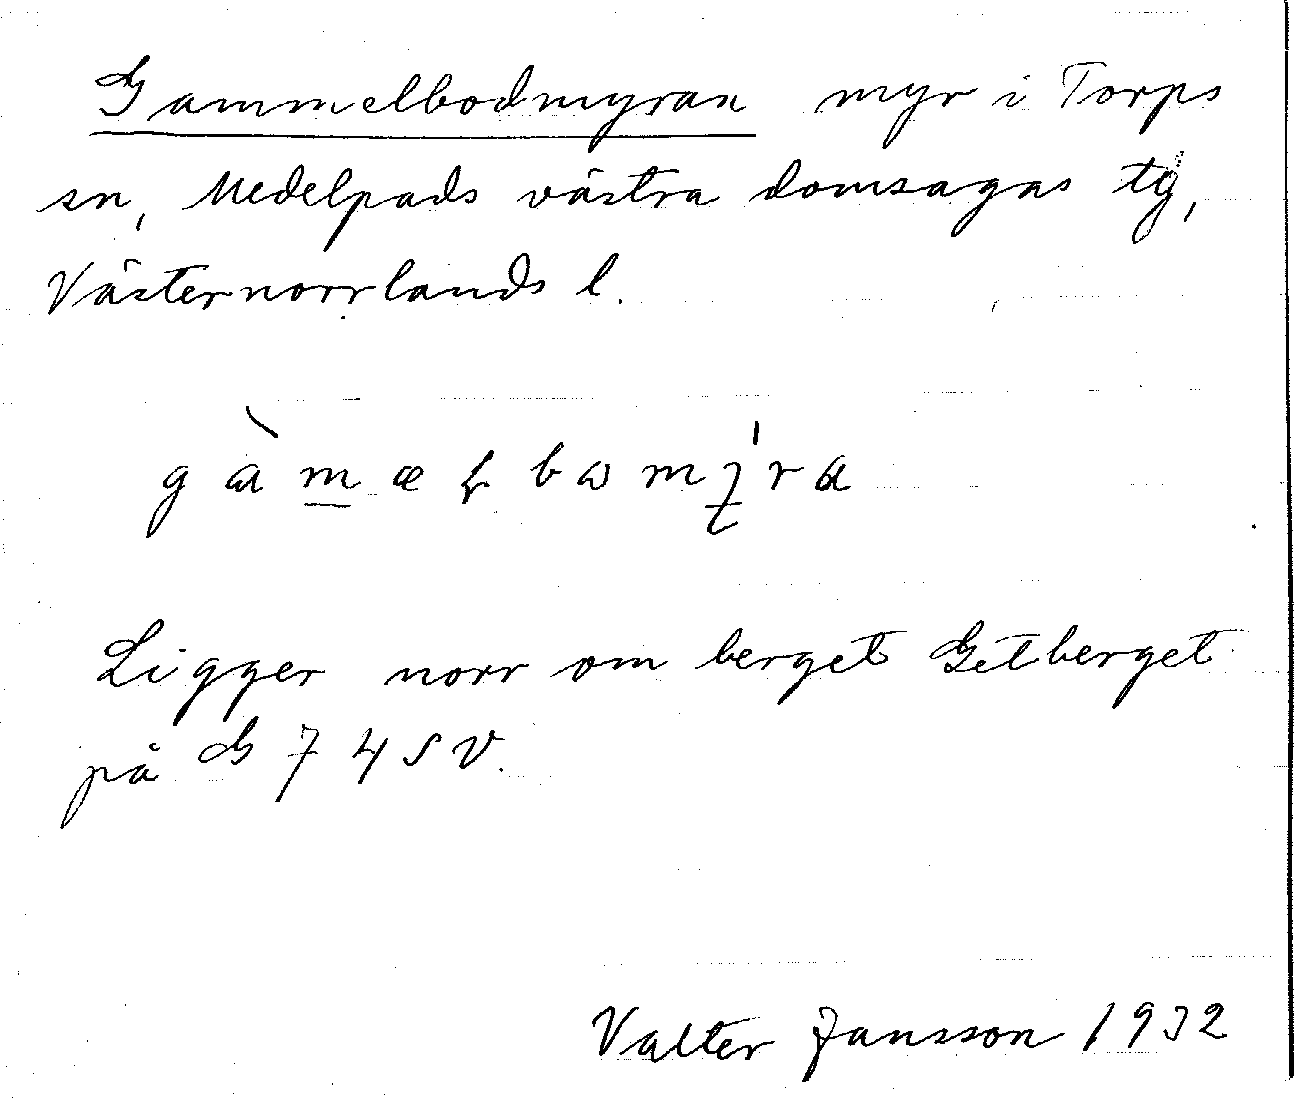 Gammelbodmyran myr i Torps
sn, Medelpads västra domsagas tg,
Västernorrlands l.
Ligger norr om berget Getberget
på G 7 4 S V.
Valter Jansson 1932